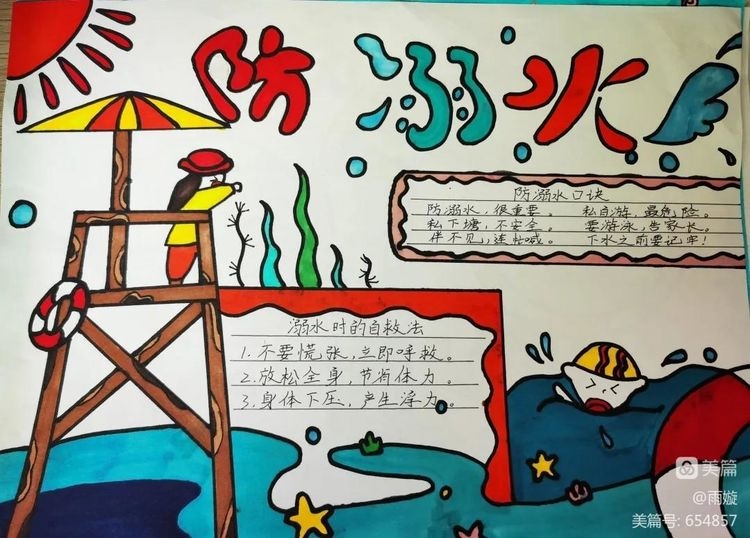 防溺水
防溺水口诀
防溺水，很重要。 私自游，最危险。
私下塘，不安全。 要游泳，告家长。
伴不见，连忙喊。 下水之前要记牢！
溺水时的自救法
1.不要慌张，立即呼救。
2.放松全身，节省体力。
3.身体下压，产生浮力。
美篇
@雨璇
美篇号: 654857